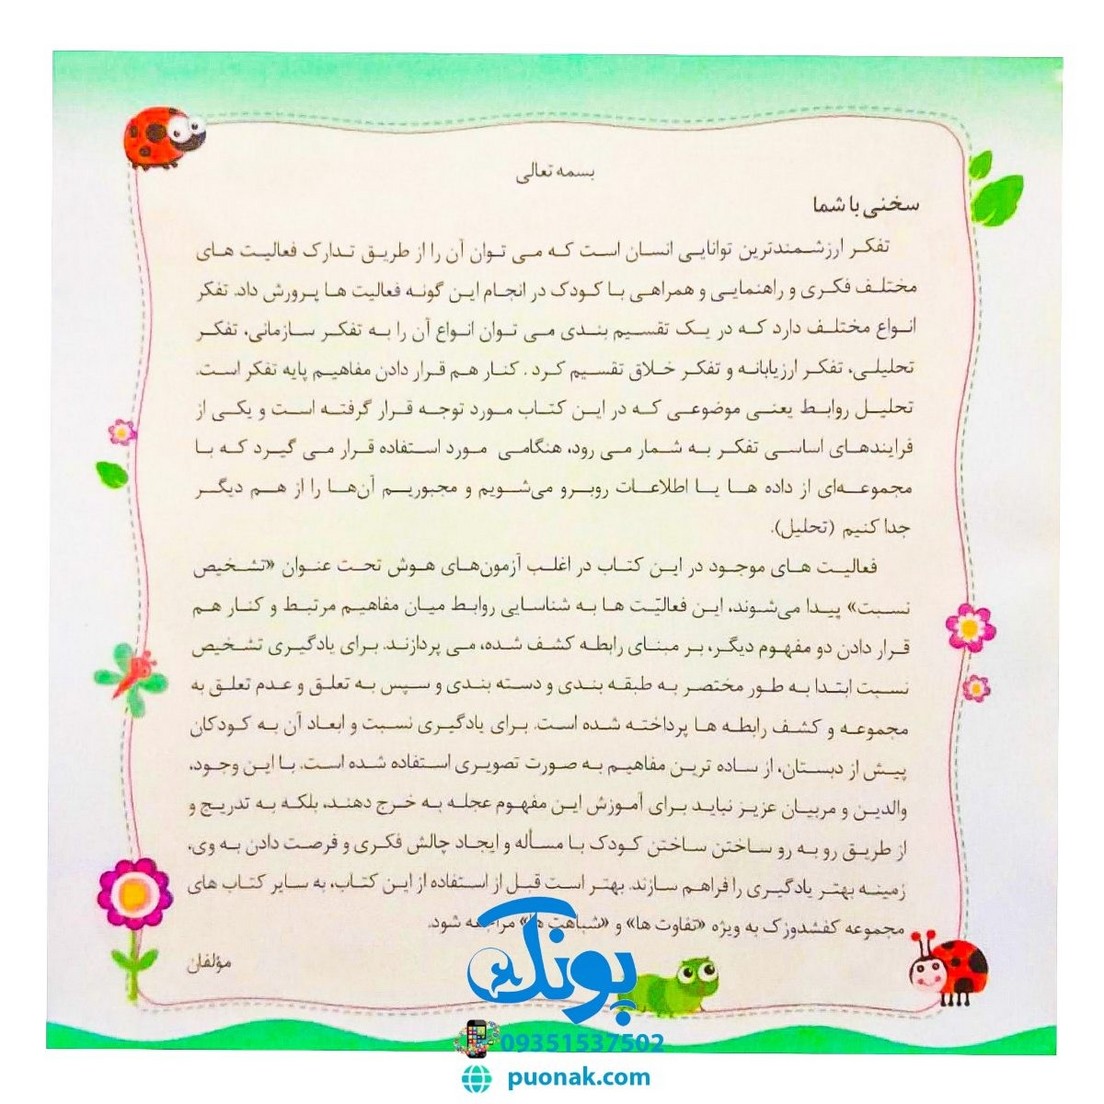 بسمه تعالی
سخنی با شما
تفکر ارزشمندترین توانایی انسان است که می توان آن را از طریق تدارک فعالیت های
مختلف فکری و راهنمایی و همراهی با کودک در انجام این گونه فعالیت ها پرورش داد. تفکر
انواع مختلف دارد که در یک تقسیم بندی می توان انواع آن را به تفکر سازمانی، تفکر
تحلیلی، تفکر ارزیابانه و تفکر خلاق تقسیم کرد . کنار هم قرار دادن مفاهیم پایه تفکر است.
تحلیل روابط یعنی موضوعی که در این کتاب مورد توجه قرار گرفته است و یکی از
فرایندهای اساسی تفکر به شمار می رود، هنگامی مورد استفاده قرار می گیرد که با
مجموعه‌ای از داده ها یا اطلاعات روبرو می‌شویم و مجبوریم آن‌ها را از هم دیگر
جدا کنیم (تحلیل).
فعالیت های موجود در این کتاب در اغلب آزمون‌های هوش تحت عنوان «تشخیص
نسبت» پیدا می‌شوند، این فعالیّت ها به شناسایی روابط میان مفاهیم مرتبط و کنار هم
قرار دادن دو مفهوم دیگر، بر مبنای رابطه کشف شده، می پردازند. برای یادگیری تشخیص
نسبت ابتدا به طور مختصر به طبقه بندی و دسته بندی و سپس به تعلق و عدم تعلق به
مجموعه و کشف رابطه ها پرداخته شده است. برای یادگیری نسبت و ابعاد آن به کودکان
پیش از دبستان، از ساده ترین مفاهیم به صورت تصویری استفاده شده است. با این وجود،
والدین و مربیان عزیز نباید برای آموزش این مفهوم عجله به خرج دهند، بلکه به تدریج و
از طریق رو به رو ساختن ساختن کودک با مسأله و ایجاد چالش فکری و فرصت دادن به وی،
زمینه بهتر یادگیری را فراهم سازند. بهتر است قبل از استفاده از این کتاب، به سایر کتاب های
مجموعه کفشدوزک به ویژه «تفاوت ها» و «شباهت ها» مراجعه شود.
مؤلفان
پونک
09351537502
puonak.com